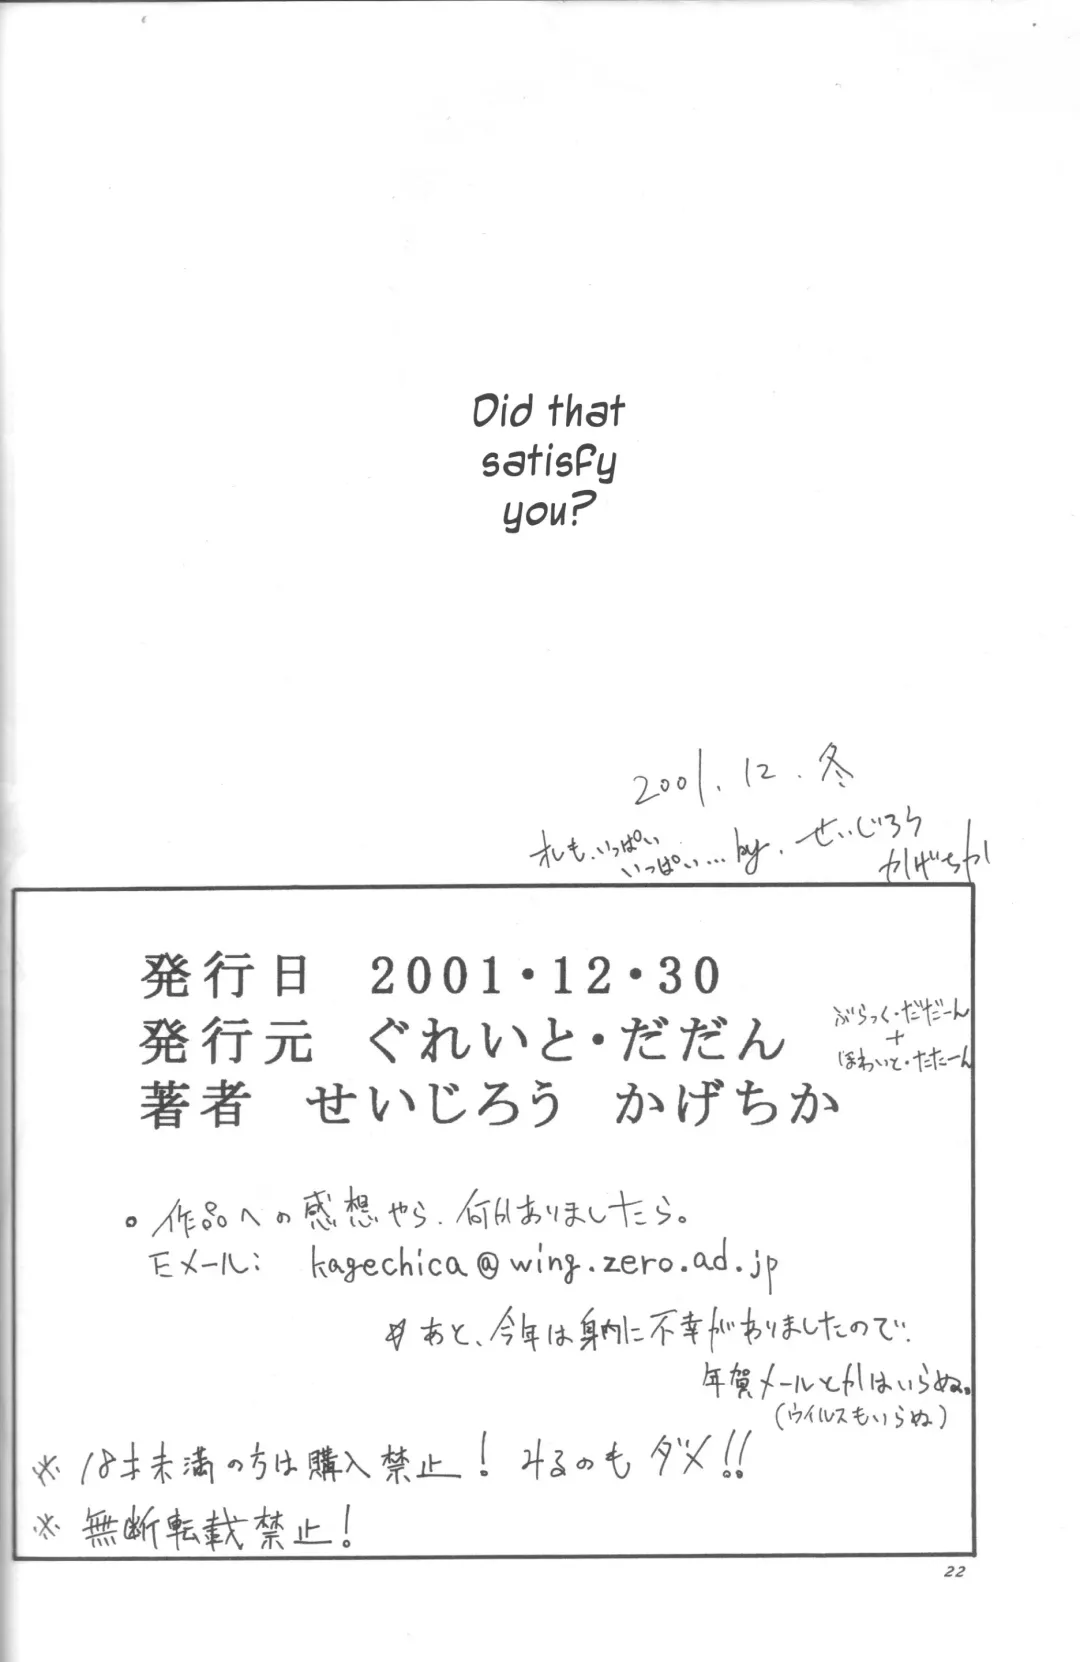 Did that
satisfy
you?
2001.12.冬
オレも、いっぱい
いっぱい…by.せいじろう
かげちか
発行日 2001・12・30
発行元 ぐれいと・だだん
ぶらっく・だだーん
+
ほわいと・たたーん
著者 せいじろう かげちか
。作品への感想やら、何かありましたら。
Eメール: kagechica@wing.zero.ad.jp
あと、今年は身内に不幸がありましたので、
年賀メールとかはいらぬ。
(ウイルスもいらぬ)
※18才未満の方は購入禁止! みるのもダメ!!
※無断転載禁止!
22